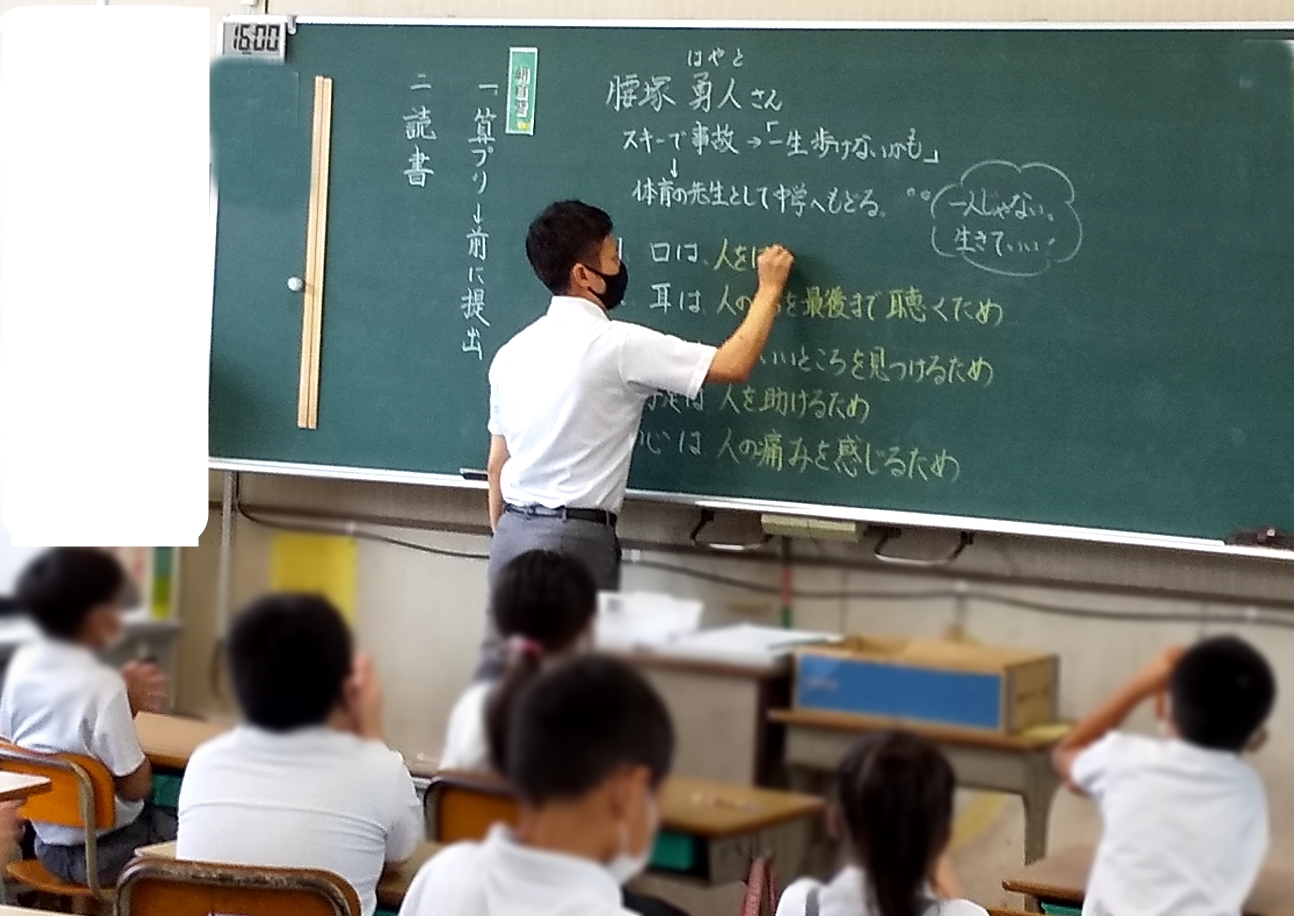 16:00
はやと
腰塚 勇人さん
スキーで事故→「一生歩けないかも」
↓
体育の先生として中学へもどる。
一人じゃない。
生きていい
口は 人を
耳は 人の を最後まで聴くため
いいところを見つけるため
は 人を助けるため
心は 人の痛みを感じるため
朝自習
一 算プリ→前に提出
二 読書